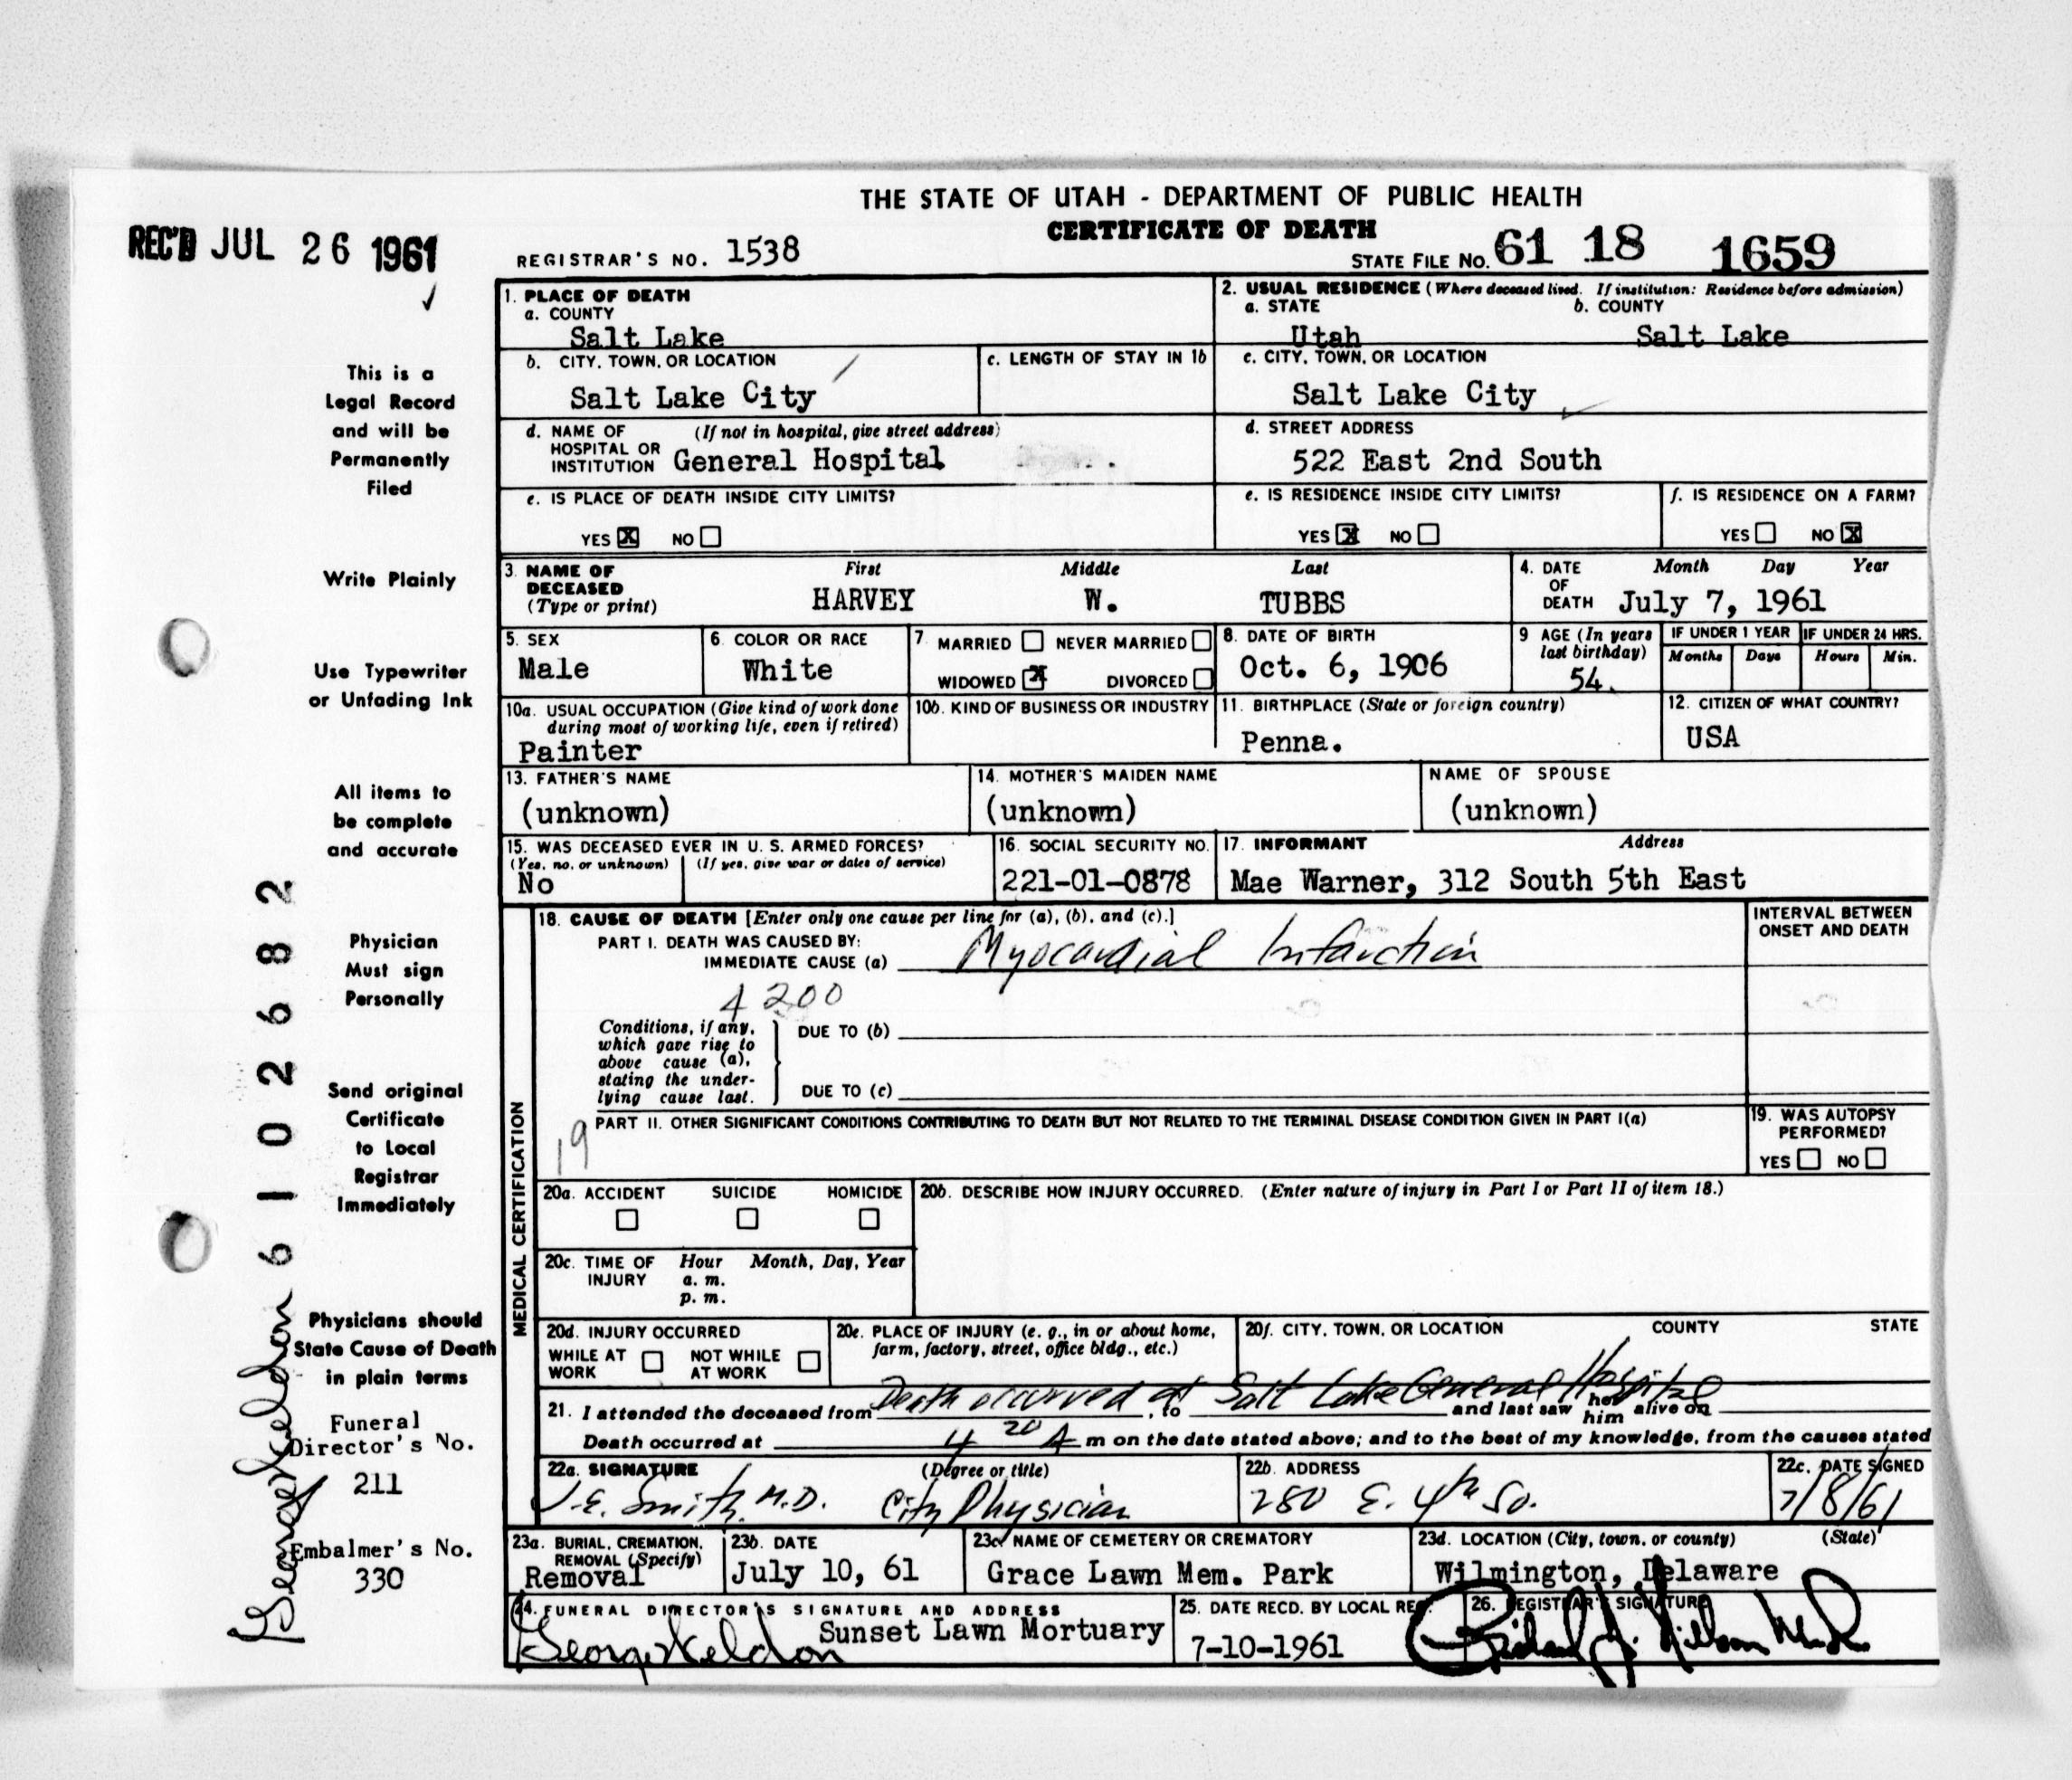 THE STATE OF UTAH - DEPARTMENT OF PUBLIC HEALTH
CERTIFICATE OF DEATH
REC'D JUL 26 1961
REGISTRAR'S NO. 1538
STATE FILE NO. 61 18 1659
This is a
Legal Record
and will be
Permanently
Filed
Write Plainly
Use Typewriter
or Unfading Ink
All items to
be complete
and accurate
Physician
Must sign
Personally
Send original
Certificate
to Local
Registrar
Immediately
Physicians should
State Cause of Death
in plain terms
Funeral
Director's No.
211
Embalmer's No.
330
61 02682
George Keldon
1. PLACE OF DEATH
a. COUNTY
Salt Lake
2. USUAL RESIDENCE (Where deceased lived. If institution: Residence before admission)
a. STATE b. COUNTY
Utah Salt Lake
b. CITY, TOWN, OR LOCATION
Salt Lake City
c. LENGTH OF STAY IN 1b
c. CITY, TOWN, OR LOCATION
Salt Lake City
d. NAME OF (If not in hospital, give street address)
HOSPITAL OR
INSTITUTION General Hospital
d. STREET ADDRESS
522 East 2nd South
e. IS PLACE OF DEATH INSIDE CITY LIMITS?
YES X NO
e. IS RESIDENCE INSIDE CITY LIMITS?
YES X NO
f. IS RESIDENCE ON A FARM?
YES NO X
3. NAME OF DECEASED (Type or print)
First Middle Last
HARVEY W. TUBBS
4. DATE OF DEATH
Month Day Year
July 7, 1961
5. SEX
Male
6. COLOR OR RACE
White
7. MARRIED NEVER MARRIED
WIDOWED X DIVORCED
8. DATE OF BIRTH
Oct. 6, 1906
9 AGE (In years last birthday)
54
IF UNDER 1 YEAR
Months Days
IF UNDER 24 HRS.
Hours Min.
10a. USUAL OCCUPATION (Give kind of work done
during most of working life, even if retired)
Painter
10b. KIND OF BUSINESS OR INDUSTRY
11. BIRTHPLACE (State or foreign country)
Penna.
12. CITIZEN OF WHAT COUNTRY?
USA
13. FATHER'S NAME
(unknown)
14. MOTHER'S MAIDEN NAME
(unknown)
NAME OF SPOUSE
(unknown)
15. WAS DECEASED EVER IN U. S. ARMED FORCES?
(Yes, no, or unknown) (If yes, give war or dates of service)
No
16. SOCIAL SECURITY NO.
221-01-0878
17. INFORMANT Address
Mae Warner, 312 South 5th East
MEDICAL CERTIFICATION
18. CAUSE OF DEATH [Enter only one cause per line for (a), (b), and (c).]
PART I. DEATH WAS CAUSED BY:
IMMEDIATE CAUSE (a) Myocardial Infarction
INTERVAL BETWEEN
ONSET AND DEATH
4200
Conditions, if any,
which gave rise to
above cause (a),
stating the under-
lying cause last.
DUE TO (b)
DUE TO (c)
19
PART II. OTHER SIGNIFICANT CONDITIONS CONTRIBUTING TO DEATH BUT NOT RELATED TO THE TERMINAL DISEASE CONDITION GIVEN IN PART I(a)
19. WAS AUTOPSY
PERFORMED?
YES NO
20a. ACCIDENT SUICIDE HOMICIDE
20b. DESCRIBE HOW INJURY OCCURRED. (Enter nature of injury in Part I or Part II of item 18.)
20c. TIME OF INJURY
Hour Month, Day, Year
a. m.
p. m.
20d. INJURY OCCURRED
WHILE AT WORK NOT WHILE AT WORK
20e. PLACE OF INJURY (e. g., in or about home,
farm, factory, street, office bldg., etc.)
20f. CITY, TOWN, OR LOCATION COUNTY STATE
Death occurred at Salt Lake General Hospital
21. I attended the deceased from , to and last saw her him alive on
Death occurred at 4 20 A m on the date stated above; and to the best of my knowledge, from the causes stated
22a. SIGNATURE (Degree or title)
J. E. Smith M.D. City Physician
22b. ADDRESS
280 E. 4th So.
22c. DATE SIGNED
7/8/61
23a. BURIAL, CREMATION,
REMOVAL (Specify)
Removal
23b. DATE
July 10, 61
23c. NAME OF CEMETERY OR CREMATORY
Grace Lawn Mem. Park
23d. LOCATION (City, town, or county) (State)
Wilmington, Delaware
24. FUNERAL DIRECTOR'S SIGNATURE AND ADDRESS
George Keldon Sunset Lawn Mortuary
25. DATE RECD. BY LOCAL REG.
7-10-1961
26. REGISTRAR'S SIGNATURE